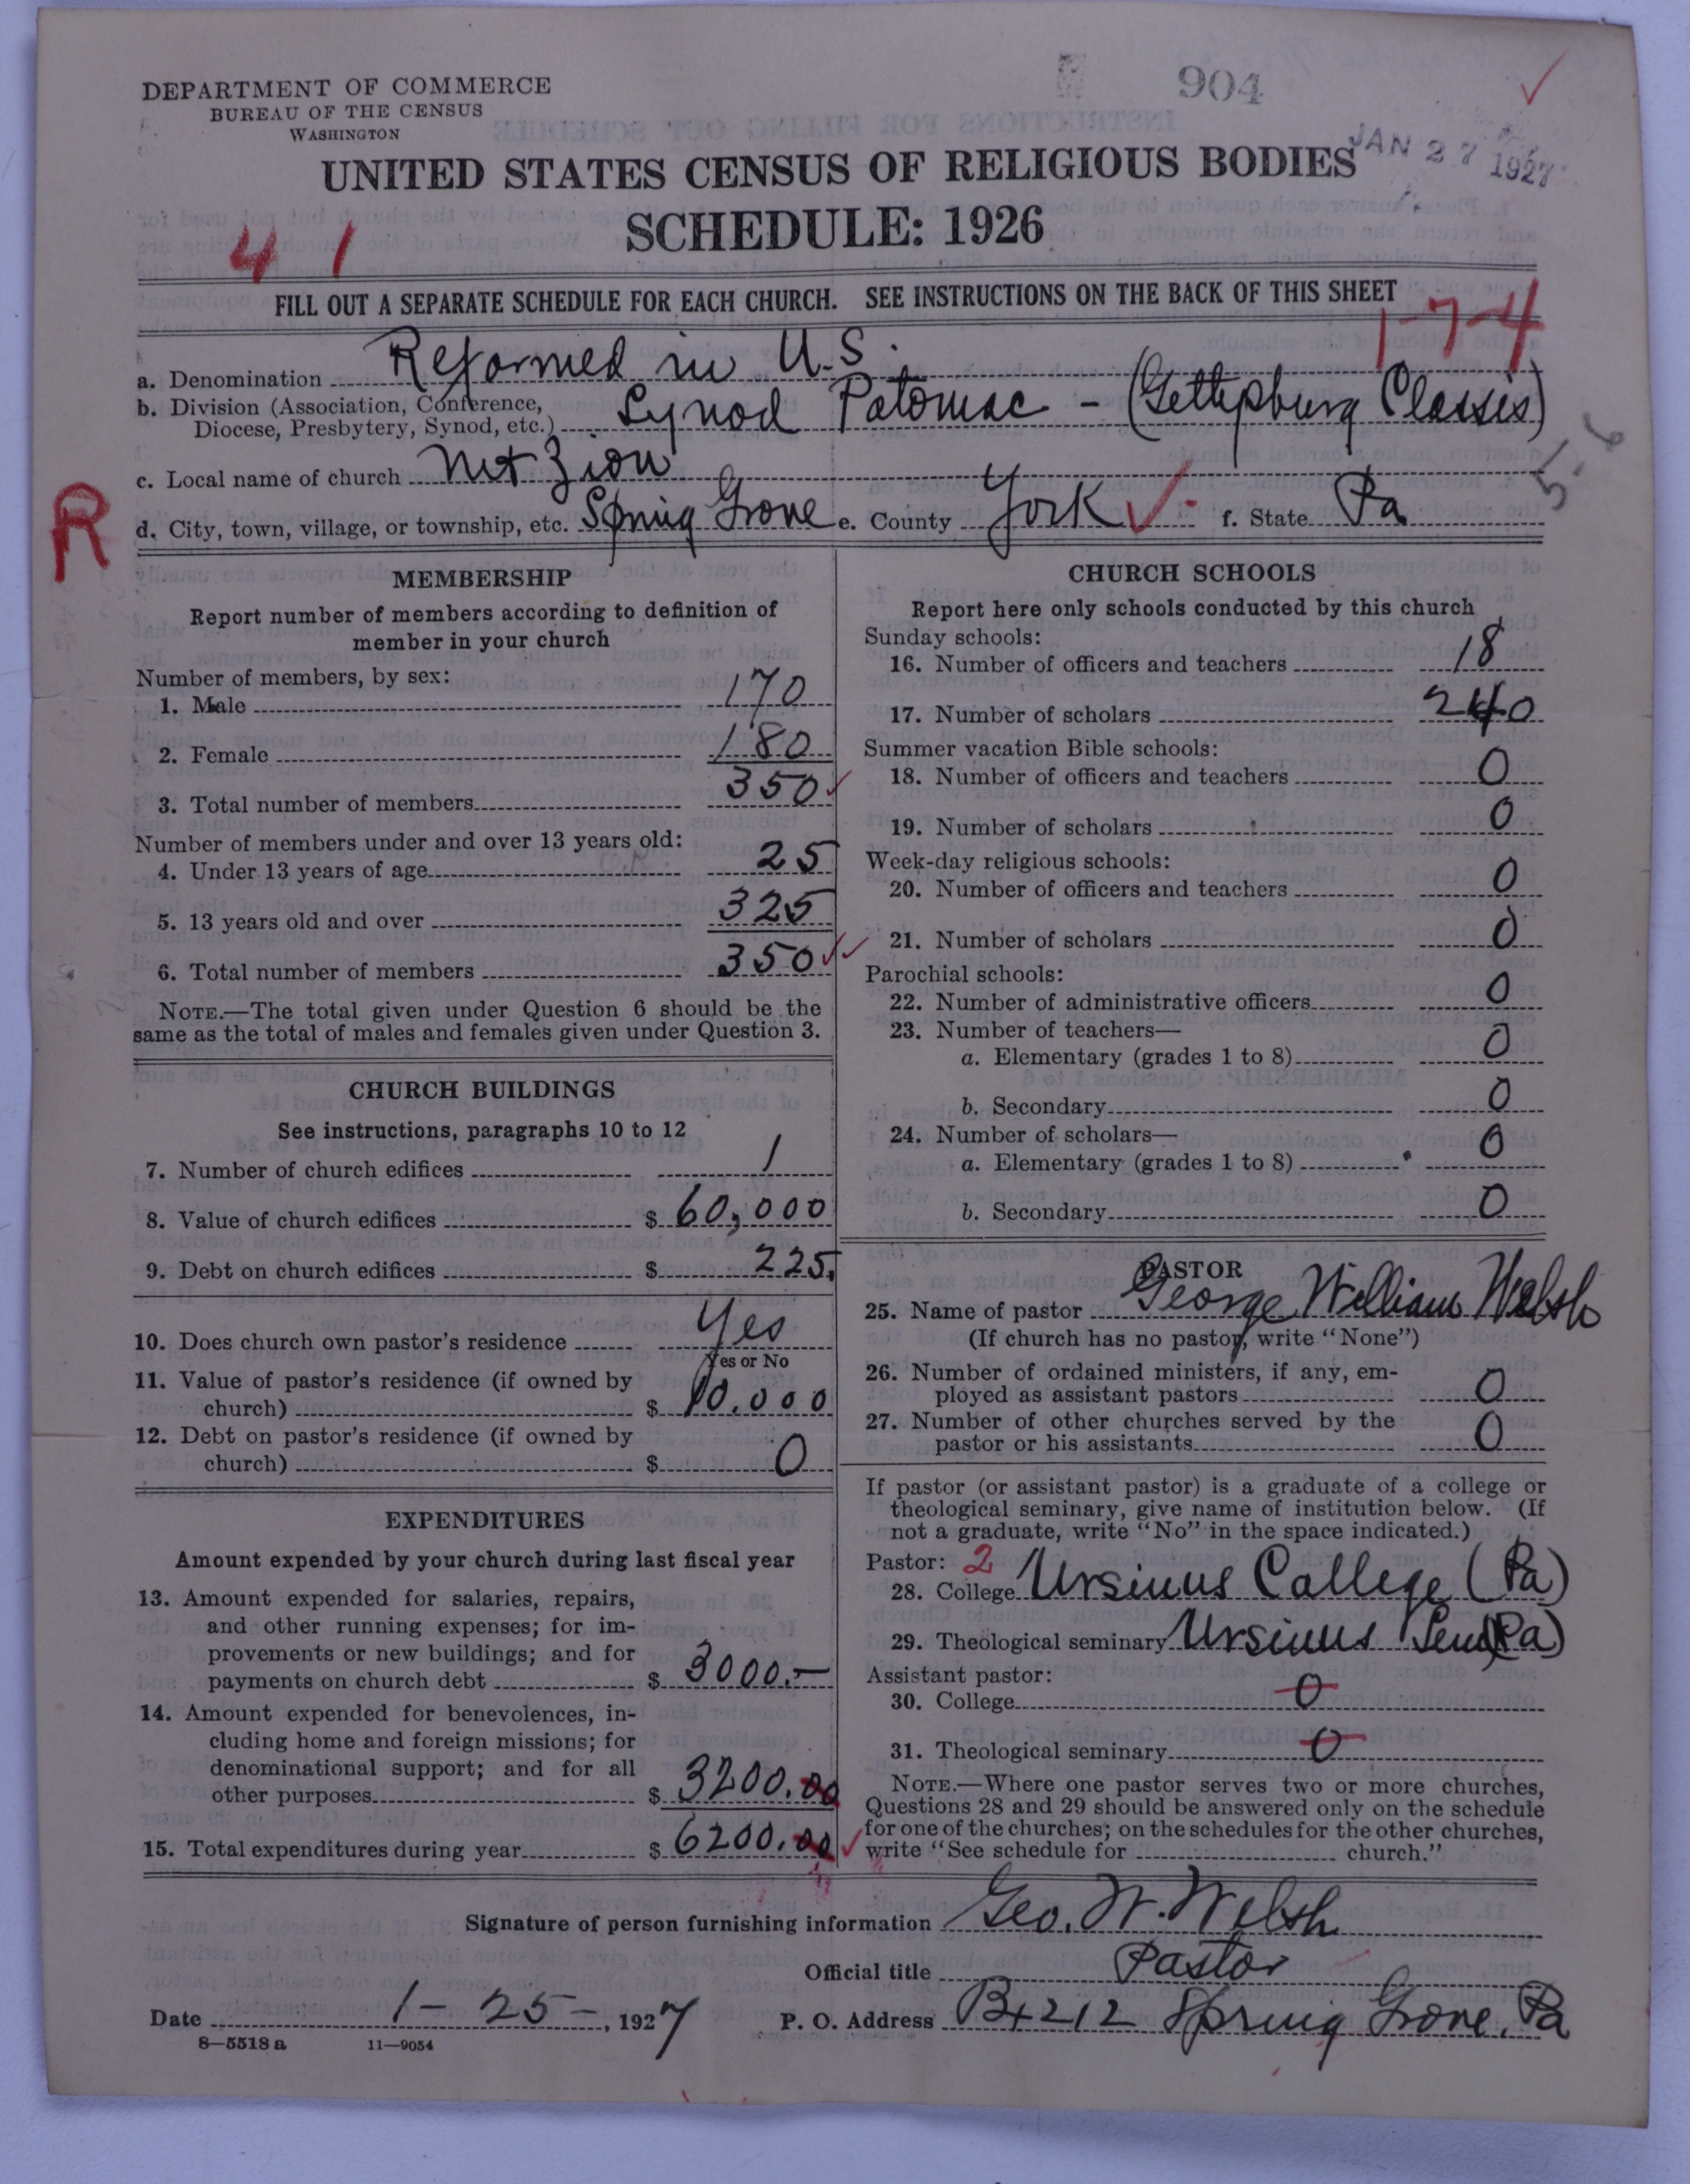 904
DEPARTMENT OF COMMERCE
BUREAU OF THE CENSUS
WASHINGTON
JAN 27 1927
UNITED STATES CENSUS OF RELIGIOUS BODIES
SCHEDULE: 1926
4 1
FILL OUT A SEPARATE SCHEDULE FOR EACH CHURCH. SEE INSTRUCTIONS ON THE BACK OF THIS SHEET
1-7-4
a. Denomination Reformed in U.S.
b. Division (Association, Conference,
Diocese, Presbytery, Synod, etc.) Synod Potomac - (Gettysburg Classis)
5-6
c. Local name of church Mt Zion
R
d. City, town, village, or township, etc. Spring Grove e. County York f. State Pa
MEMBERSHIP
Report number of members according to definition of
member in your church
Number of members, by sex:
1. Male 170
2. Female 180
3. Total number of members 350
Number of members under and over 13 years old:
4. Under 13 years of age 25
5. 13 years old and over 325
6. Total number of members 350
NOTE.—The total given under Question 6 should be the
same as the total of males and females given under Question 3.
CHURCH BUILDINGS
See instructions, paragraphs 10 to 12
7. Number of church edifices 1
8. Value of church edifices $ 60,000
9. Debt on church edifices $ 225.
10. Does church own pastor's residence Yes
Yes or No
11. Value of pastor's residence (if owned by
church) $ 10.000
12. Debt on pastor's residence (if owned by
church) $ 0
EXPENDITURES
Amount expended by your church during last fiscal year
13. Amount expended for salaries, repairs,
and other running expenses; for im-
provements or new buildings; and for
payments on church debt $ 3000.—
14. Amount expended for benevolences, in-
cluding home and foreign missions; for
denominational support; and for all
other purposes $ 3200.00
15. Total expenditures during year $ 6200.00
CHURCH SCHOOLS
Report here only schools conducted by this church
Sunday schools:
16. Number of officers and teachers 18
17. Number of scholars 240
Summer vacation Bible schools:
18. Number of officers and teachers 0
19. Number of scholars 0
Week-day religious schools:
20. Number of officers and teachers 0
21. Number of scholars 0
Parochial schools:
22. Number of administrative officers 0
23. Number of teachers—
a. Elementary (grades 1 to 8) 0
b. Secondary 0
24. Number of scholars—
a. Elementary (grades 1 to 8) 0
b. Secondary 0
PASTOR
25. Name of pastor George William Welsh
(If church has no pastor, write "None")
26. Number of ordained ministers, if any, em-
ployed as assistant pastors 0
27. Number of other churches served by the
pastor or his assistants 0
If pastor (or assistant pastor) is a graduate of a college or
theological seminary, give name of institution below. (If
not a graduate, write "No" in the space indicated.)
Pastor: 2
28. College Ursinus College (Pa)
29. Theological seminary Ursinus Sem (Pa)
Assistant pastor:
30. College 0
31. Theological seminary 0
NOTE.—Where one pastor serves two or more churches,
Questions 28 and 29 should be answered only on the schedule
for one of the churches; on the schedules for the other churches,
write "See schedule for church."
Signature of person furnishing information Geo. W. Welsh
Official title Pastor
Date 1-25-, 1927 P. O. Address Bx 212 Spring Grove, Pa
8—5518 a 11—9054